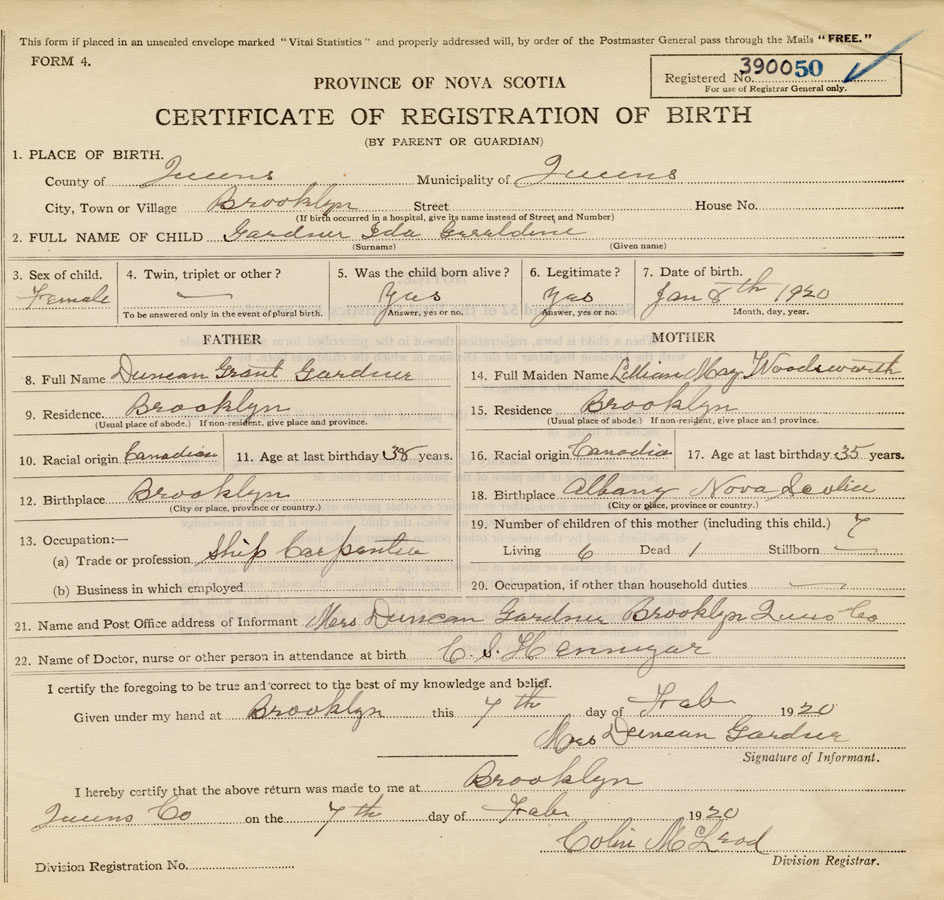 This form if placed in an unsealed envelope marked "Vital Statistics" and properly addressed will, by order of the Postmaster General pass through the Mails "FREE."
FORM 4.
Registered No. 390050
For use of Registrar General only.
PROVINCE OF NOVA SCOTIA
CERTIFICATE OF REGISTRATION OF BIRTH
(BY PARENT OR GUARDIAN)
1. PLACE OF BIRTH.
County of Queens Municipality of Queens
City, Town or Village Brooklyn Street House No.
(If birth occurred in a hospital, give its name instead of Street and Number)
2. FULL NAME OF CHILD Gardner Ida Geraldine
(Surname) (Given name)
3. Sex of child. 4. Twin, triplet or other? 5. Was the child born alive? 6. Legitimate? 7. Date of birth.
Female — Yes Yes Jan 8th 1920
To be answered only in the event of plural birth. Answer, yes or no. Answer, yes or no. Month, day, year.
FATHER
8. Full Name Duncan Grant Gardner
9. Residence. Brooklyn
(Usual place of abode.) If non-resident, give place and province.
10. Racial origin Canadian 11. Age at last birthday 38 years.
12. Birthplace Brooklyn
(City or place, province or country.)
13. Occupation:—
(a) Trade or profession Ship Carpenter
(b) Business in which employed
MOTHER
14. Full Maiden Name Lillian May Woodsworth
15. Residence Brooklyn
(Usual place of abode.) If non-resident, give place and province.
16. Racial origin Canadia 17. Age at last birthday 35 years.
18. Birthplace Albany Nova Scotia
(City or place, province or country.)
19. Number of children of this mother (including this child.) 7
Living 6 Dead 1 Stillborn —
20. Occupation, if other than household duties —
21. Name and Post Office address of Informant Mrs Duncan Gardner Brooklyn Co
22. Name of Doctor, nurse or other person in attendance at birth C. S. Hennigar
I certify the foregoing to be true and correct to the best of my knowledge and belief.
Given under my hand at Brooklyn this 7th day of Feb 1920
Mrs Duncan Gardner
Signature of Informant.
I hereby certify that the above return was made to me at Brooklyn
Queens Co on the 7th day of Feb 1920
Colin McLeod
Division Registrar.
Division Registration No.